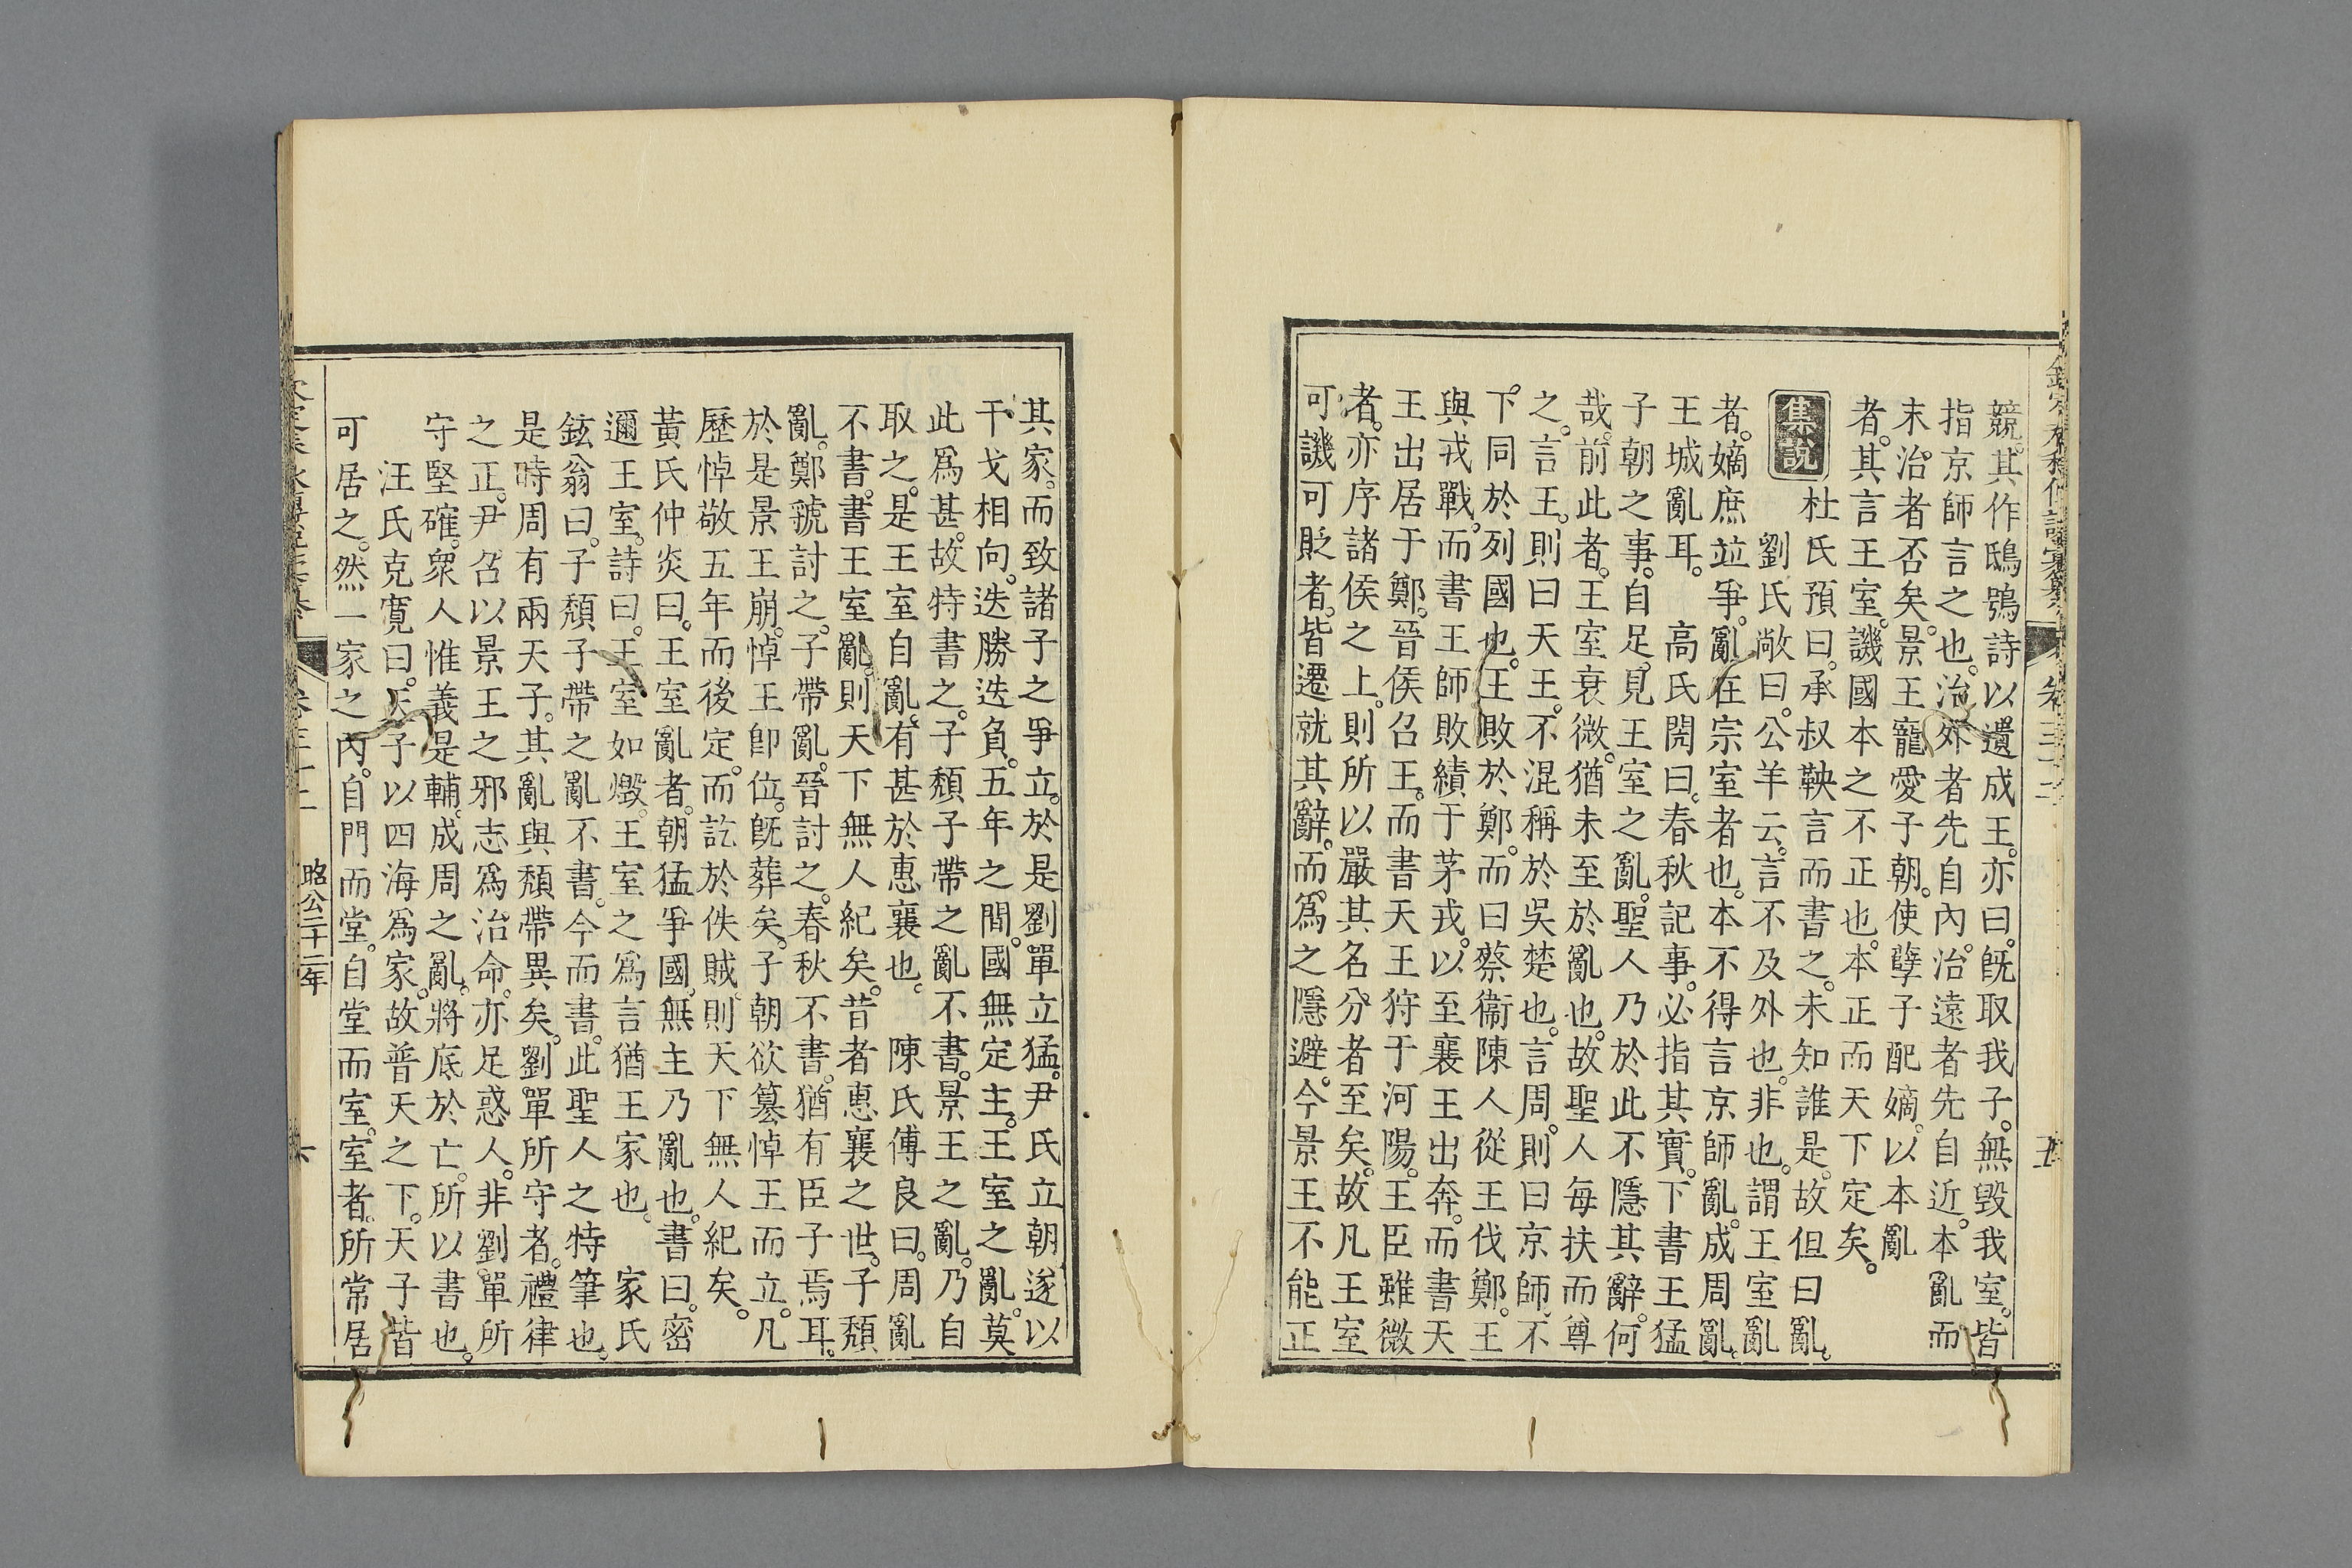 競。其作鴟鴞詩以遺成王。亦曰。旣取我子。無毀我室。皆
指京師言之也。治外者先自內。治遠者先自近。本亂而
末治者否矣。景王寵愛子朝。使孽子配嫡。以本亂
者。其言王室。譏國本之不正也。本正而天下定矣。
集說
杜氏預曰。承叔鞅言而書之。未知誰是。故但曰亂。
劉氏敞曰。公羊云。言不及外也。非也。謂王室亂
者。嫡庶並爭。亂在宗室者也。本不得言京師亂。成周亂。
王城亂耳。 高氏閌曰。春秋記事。必指其實。下書王猛
子朝之事。自足。見王室之亂。聖人乃於此不隱其辭。何
哉。前此者。王室衰微。猶未至於亂也。故聖人每扶而尊
之。言王。則曰天王。不混稱於吳楚也。言周。則曰京師。不
下同於列國也。王敗於鄭。而曰蔡衞陳人從王伐鄭。王
與戎戰。而書王師敗績于茅戎。以至襄王出奔。而書天
王出居于鄭。晉侯召王。而書天王狩于河陽。王臣雖微
者。亦序諸侯之上。則所以嚴其名分者至矣。故凡王室
可譏可貶者。皆遷就其辭。而爲之隱避。今景王不能正
卷三十二
五
其家。而致諸子之爭立。於是劉單立猛。尹氏立朝。遂以
干戈相向。迭勝迭負。五年之間。國無定主。王室之亂。莫
此爲甚。故特書之。子頹子帶之亂不書。景王之亂。乃自
取之。是王室自亂。有甚於惠襄也。 陳氏傅良曰。周亂
不書。書王室亂。則天下無人紀矣。昔者惠襄之世。子頹
亂。鄭虢討之。子帶亂。晉討之。春秋不書。猶有臣子焉耳。
於是景王崩。悼王卽位。旣葬矣。子朝欲篡悼王而立。凡
歷悼敬五年而後定。而訖於佚賊。則天下無人紀矣。
黃氏仲炎曰。王室亂者。朝猛爭國。無主乃亂也。書曰。密
邇王室。詩曰。王室如燬。王室之爲言猶王家也。 家氏
鉉翁曰。子頹子帶之亂不書。今而書。此聖人之特筆也。
是時周有兩天子。其亂與頹帶異矣。劉單所守者。禮律
之正。尹召以景王之邪志爲治命。亦足惑人。非劉單所
守堅確。衆人惟義是輔。成周之亂。將底於亡。所以書也。
汪氏克寬曰。天子以四海爲家。故普天之下。天子皆
可居之。然一家之內。自門而堂。自堂而室。室者。所常居
昭公二十二年